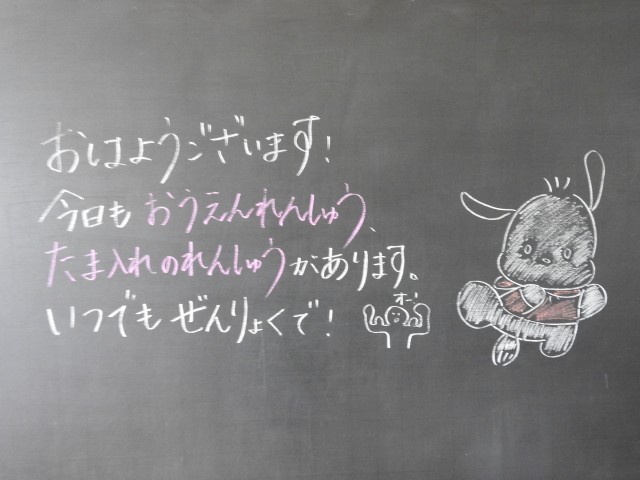 おはようございます!
今日も おうえんれんしゅう、
たま入れのれんしゅうがあります。
いつでも ぜんりょくで!
オー!